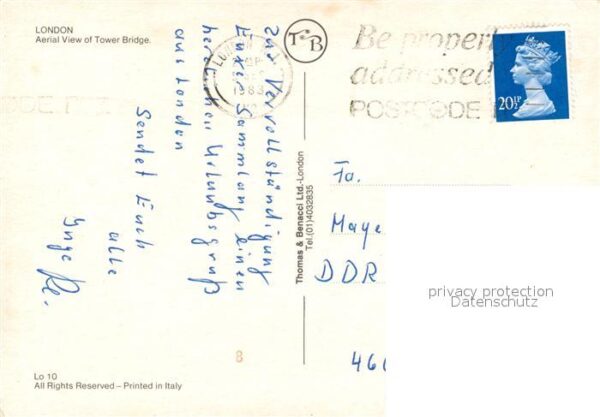 LONDON
Aerial View of Tower Bridge.
Zur Vervollständigung
Eurer Sammlung einen
herzlichen Urlaubsgruß
aus London
Sendet Euch
alle
Inge
Lo 10
All Rights Reserved – Printed in Italy
8
TB
Thomas & Benacci Ltd.-London
Tel.(01)4032835
LONDON
1983
Be properly
addressed
POSTCODE
20½P
Fa.
Maye
DDR
460
privacy protection
Datenschutz